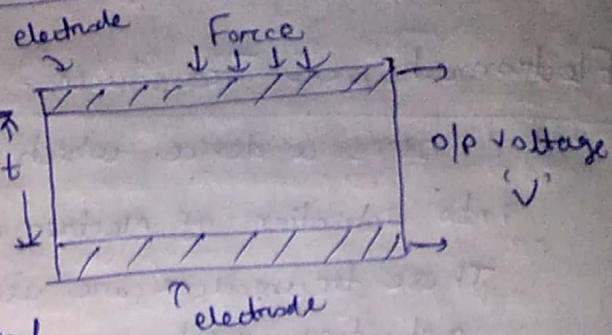 electrode
Force
t
o/p voltage
'V'
electrode